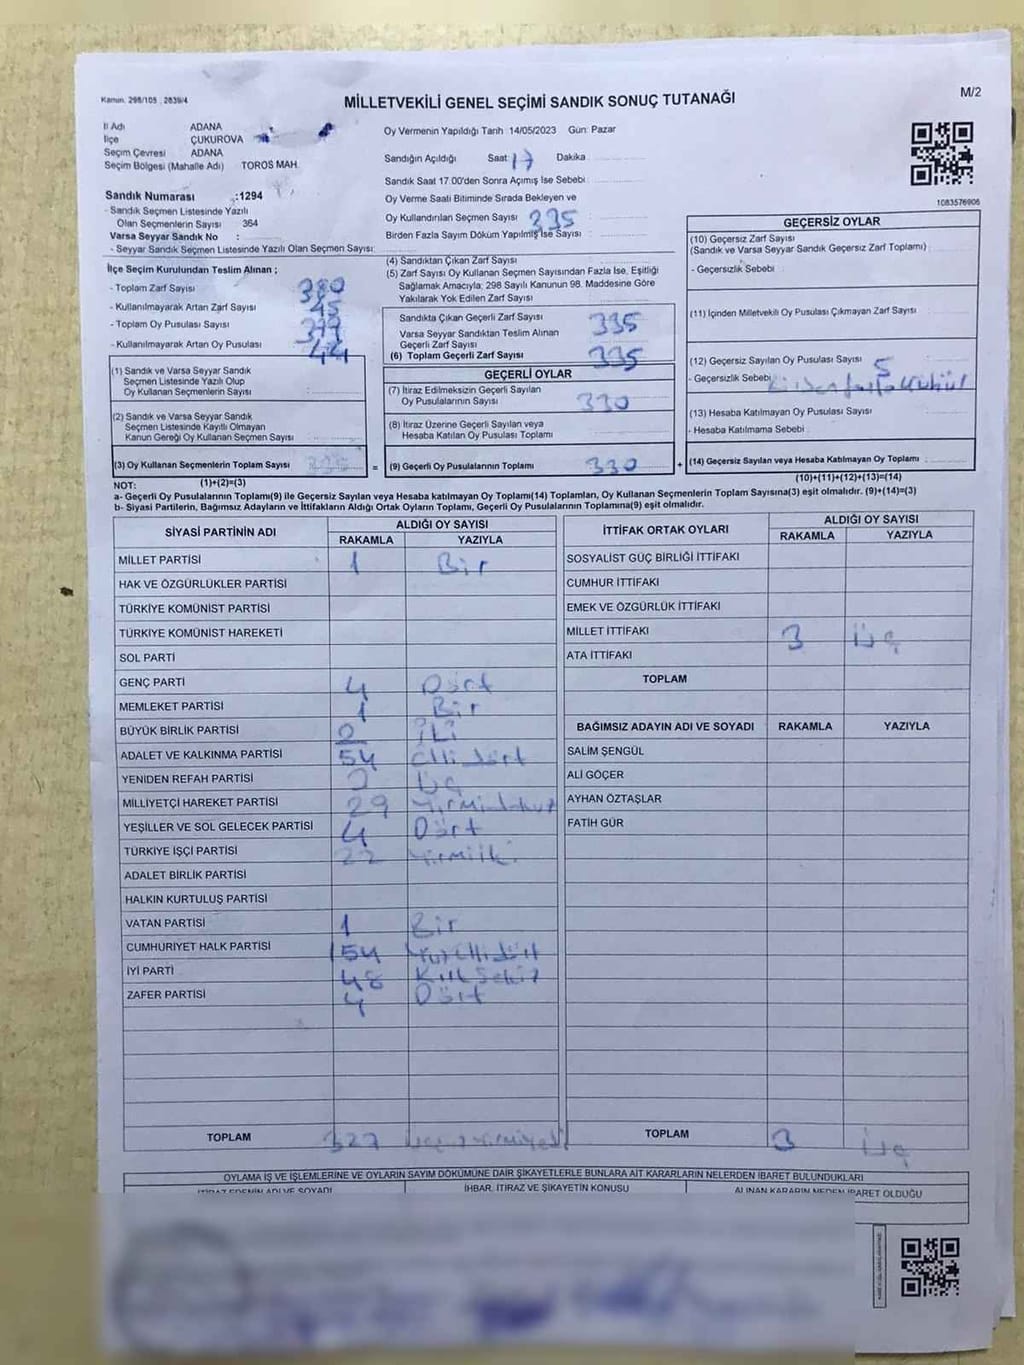 Kanun. 298/105 . 2839/4
MİLLETVEKİLİ GENEL SEÇİMİ SANDIK SONUÇ TUTANAĞI
M/2
İl Adı ADANA
İlçe ÇUKUROVA
Seçim Çevresi ADANA
Seçim Bölgesi (Mahalle Adı) TOROS MAH.
Sandık Numarası :1294
- Sandık Seçmen Listesinde Yazılı
Olan Seçmenlerin Sayısı 364
Varsa Seyyar Sandık No :
- Seyyar Sandık Seçmen Listesinde Yazılı Olan Seçmen Sayısı:
Oy Vermenin Yapıldığı Tarih 14/05/2023 Gün: Pazar
Sandığın Açıldığı Saat 17 Dakika
Sandık Saat 17.00'den Sonra Açımış İse Sebebi
Oy Verme Saati Bitiminde Sırada Bekleyen ve
Oy Kullandırılan Seçmen Sayısı 335
Birden Fazla Sayım Döküm Yapılmış İse Sayısı :
1083576906
İlçe Seçim Kurulundan Teslim Alınan ;
- Toplam Zarf Sayısı 380
- Kullanılmayarak Artan Zarf Sayısı 45
- Toplam Oy Pusulası Sayısı
- Kullanılmayarak Artan Oy Pusulası 44
(1) Sandık ve Varsa Seyyar Sandık
Seçmen Listesinde Yazılı Olup
Oy Kullanan Seçmenlerin Sayısı
(2) Sandık ve Varsa Seyyar Sandık
Seçmen Listesinde Kayıtlı Olmayan
Kanun Gereği Oy Kullanan Seçmen Sayısı
(3) Oy Kullanan Seçmenlerin Toplam Sayısı 335 =
(4) Sandıktan Çıkan Zarf Sayısı
(5) Zarf Sayısı Oy Kullanan Seçmen Sayısından Fazla İse, Eşitliği
Sağlamak Amacıyla; 298 Sayılı Kanunun 98. Maddesine Göre
Yakılarak Yok Edilen Zarf Sayısı
Sandıkta Çıkan Geçerli Zarf Sayısı 335
Varsa Seyyar Sandıktan Teslim Alınan
Geçerli Zarf Sayısı
(6) Toplam Geçerli Zarf Sayısı 335
GEÇERLİ OYLAR
(7) İtiraz Edilmeksizin Geçerli Sayılan
Oy Pusulalarının Sayısı 330
(8) İtiraz Üzerine Geçerli Sayılan veya
Hesaba Katılan Oy Pusulası Toplamı
(9) Geçerli Oy Pusulalarının Toplamı 330 +
GEÇERSİZ OYLAR
(10) Geçersiz Zarf Sayısı
(Sandık ve Varsa Seyyar Sandık Geçersiz Zarf Toplamı)
- Geçersizlik Sebebi
(11) İçinden Milletvekili Oy Pusulası Çıkmayan Zarf Sayısı
(12) Geçersiz Sayılan Oy Pusulası Sayısı 5
- Geçersizlik Sebebi
(13) Hesaba Katılmayan Oy Pusulası Sayısı
- Hesaba Katılmama Sebebi
(14) Geçersiz Sayılan veya Hesaba Katılmayan Oy Toplamı :
NOT: (1)+(2)=(3) (10)+(11)+(12)+(13)=(14)
a- Geçerli Oy Pusulalarının Toplamı(9) ile Geçersiz Sayılan veya Hesaba katılmayan Oy Toplamı(14) Toplamları, Oy Kullanan Seçmenlerin Toplam Sayısına(3) eşit olmalıdır. (9)+(14)=(3)
b- Siyasi Partilerin, Bağımsız Adayların ve İttifakların Aldığı Ortak Oyların Toplamı, Geçerli Oy Pusulalarının Toplamına(9) eşit olmalıdır.
SİYASİ PARTİNİN ADI ALDIĞI OY SAYISI
RAKAMLA YAZIYLA
MİLLET PARTİSİ 1 Bir
HAK VE ÖZGÜRLÜKLER PARTİSİ
TÜRKİYE KOMÜNİST PARTİSİ
TÜRKİYE KOMÜNİST HAREKETİ
SOL PARTİ
GENÇ PARTİ 4 Dört
MEMLEKET PARTİSİ 1 Bir
BÜYÜK BİRLİK PARTİSİ
ADALET VE KALKINMA PARTİSİ 54 Ellidört
YENİDEN REFAH PARTİSİ Üç
MİLLİYETÇİ HAREKET PARTİSİ 29 Yirmidokuz
YEŞİLLER VE SOL GELECEK PARTİSİ 4 Dört
TÜRKİYE İŞÇİ PARTİSİ 22 Yirmiiki
ADALET BİRLİK PARTİSİ
HALKIN KURTULUŞ PARTİSİ
VATAN PARTİSİ 1 Bir
CUMHURİYET HALK PARTİSİ 154 Yüzellidört
İYİ PARTİ 48 Kırksekiz
ZAFER PARTİSİ 4 Dört
TOPLAM 327 Üçyüzyirmiyedi
İTTİFAK ORTAK OYLARI ALDIĞI OY SAYISI
RAKAMLA YAZIYLA
SOSYALİST GÜÇ BİRLİĞİ İTTİFAKI
CUMHUR İTTİFAKI
EMEK VE ÖZGÜRLÜK İTTİFAKI
MİLLET İTTİFAKI 3 Üç
ATA İTTİFAKI
TOPLAM
BAĞIMSIZ ADAYIN ADI VE SOYADI RAKAMLA YAZIYLA
SALİM ŞENGÜL
ALİ GÖÇER
AYHAN ÖZTAŞLAR
FATİH GÜR
TOPLAM 3 Üç
OYLAMA İŞ VE İŞLEMLERİNE VE OYLARIN SAYIM DÖKÜMÜNE DAİR ŞİKAYETLERLE BUNLARA AİT KARARLARIN NELERDEN İBARET BULUNDUKLARI
İTİRAZ EDENİN ADI VE SOYADI İHBAR, İTİRAZ VE ŞİKAYETİN KONUSU ALINAN KARARIN NEDEN İBARET OLDUĞU